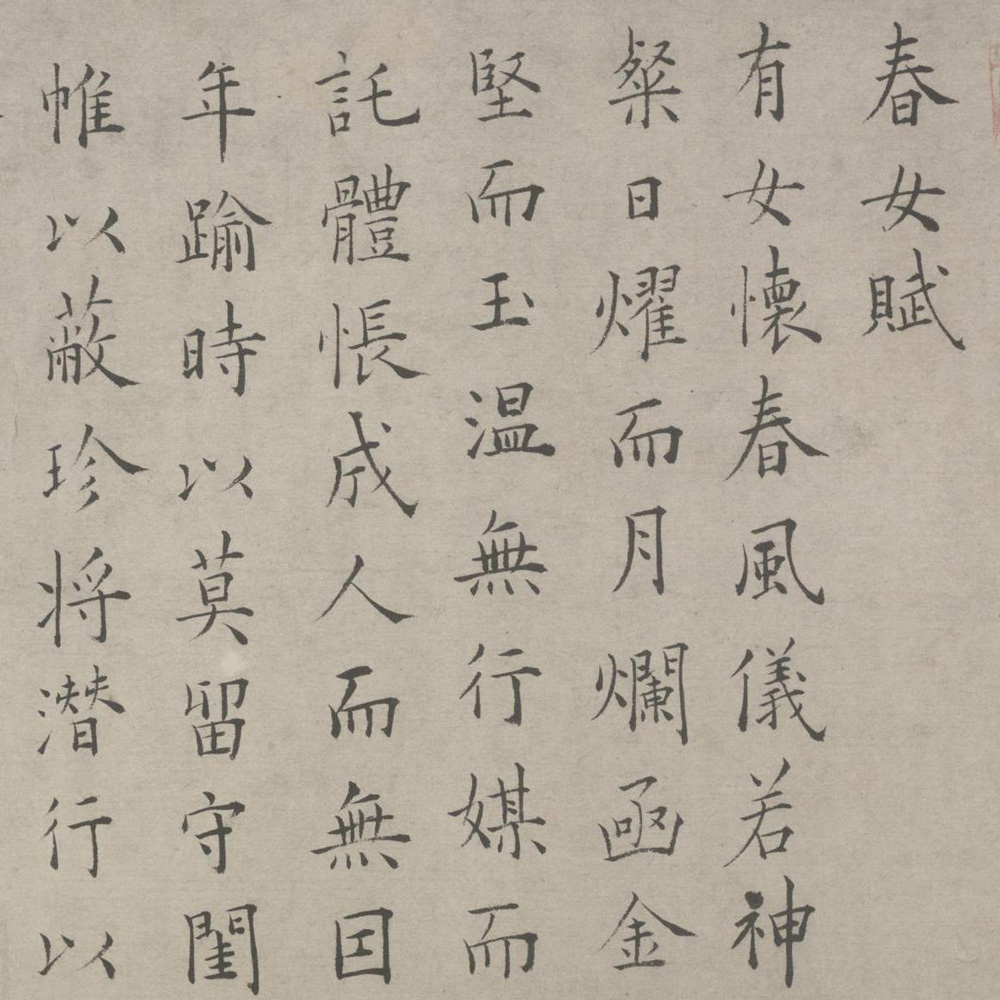 春女賦
有女懷春風儀若神
粲日燿而月爛凾金
堅而玉温無行媒而
託體悵成人而無囙
年踰時以莫留守閨
帷以蔽珍将潜行以